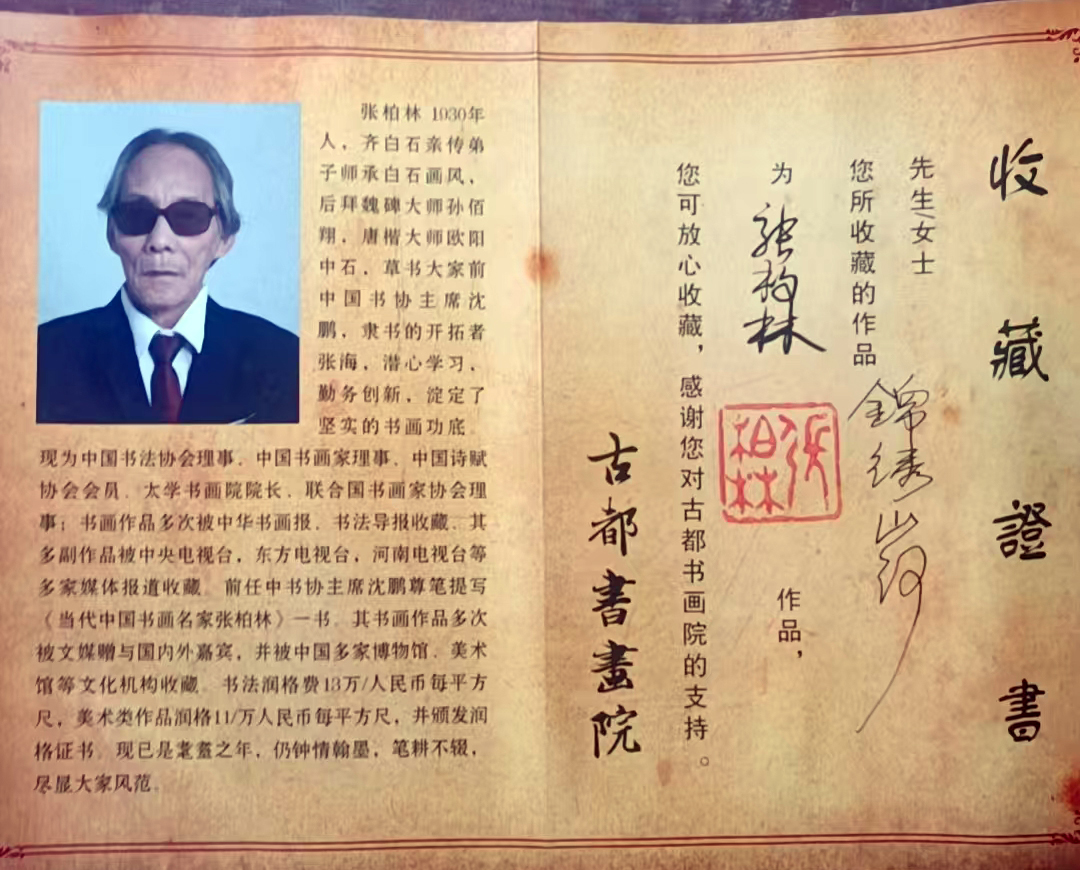 收藏證書
先生/女士
您所收藏的作品
錦绣山河
为
张柏林
张柏林
作品，
您可放心收藏，感谢您对古都书画院的支持。
古都書畫院
张柏林 1930年
人，齐白石亲传弟
子师承白石画风、
后拜魏碑大师孙佰
翔，唐楷大师欧阳
中石，草书大家前
中国书协主席沈
鹏，隶书的开拓者
张海，潜心学习、
勤务创新，淀定了
坚实的书画功底.
现为中国书法协会理事、中国书画家理事、中国诗赋
协会会员、太学书画院院长、联合国书画家协会理
事；书画作品多次被中华书画报、书法导报收藏、其
多副作品被中央电视台，东方电视台，河南电视台等
多家媒体报道收藏. 前任中书协主席沈鹏尊笔提写
《当代中国书画名家张柏林》一书. 其书画作品多次
被文媒赠与国内外嘉宾，并被中国多家博物馆、美术
馆等文化机构收藏. 书法润格费13万/人民币每平方
尺，美术类作品润格11/万人民币每平方尺，并颁发润
格证书. 现已是耄耋之年，仍钟情翰墨，笔耕不辍，
尽显大家风范.